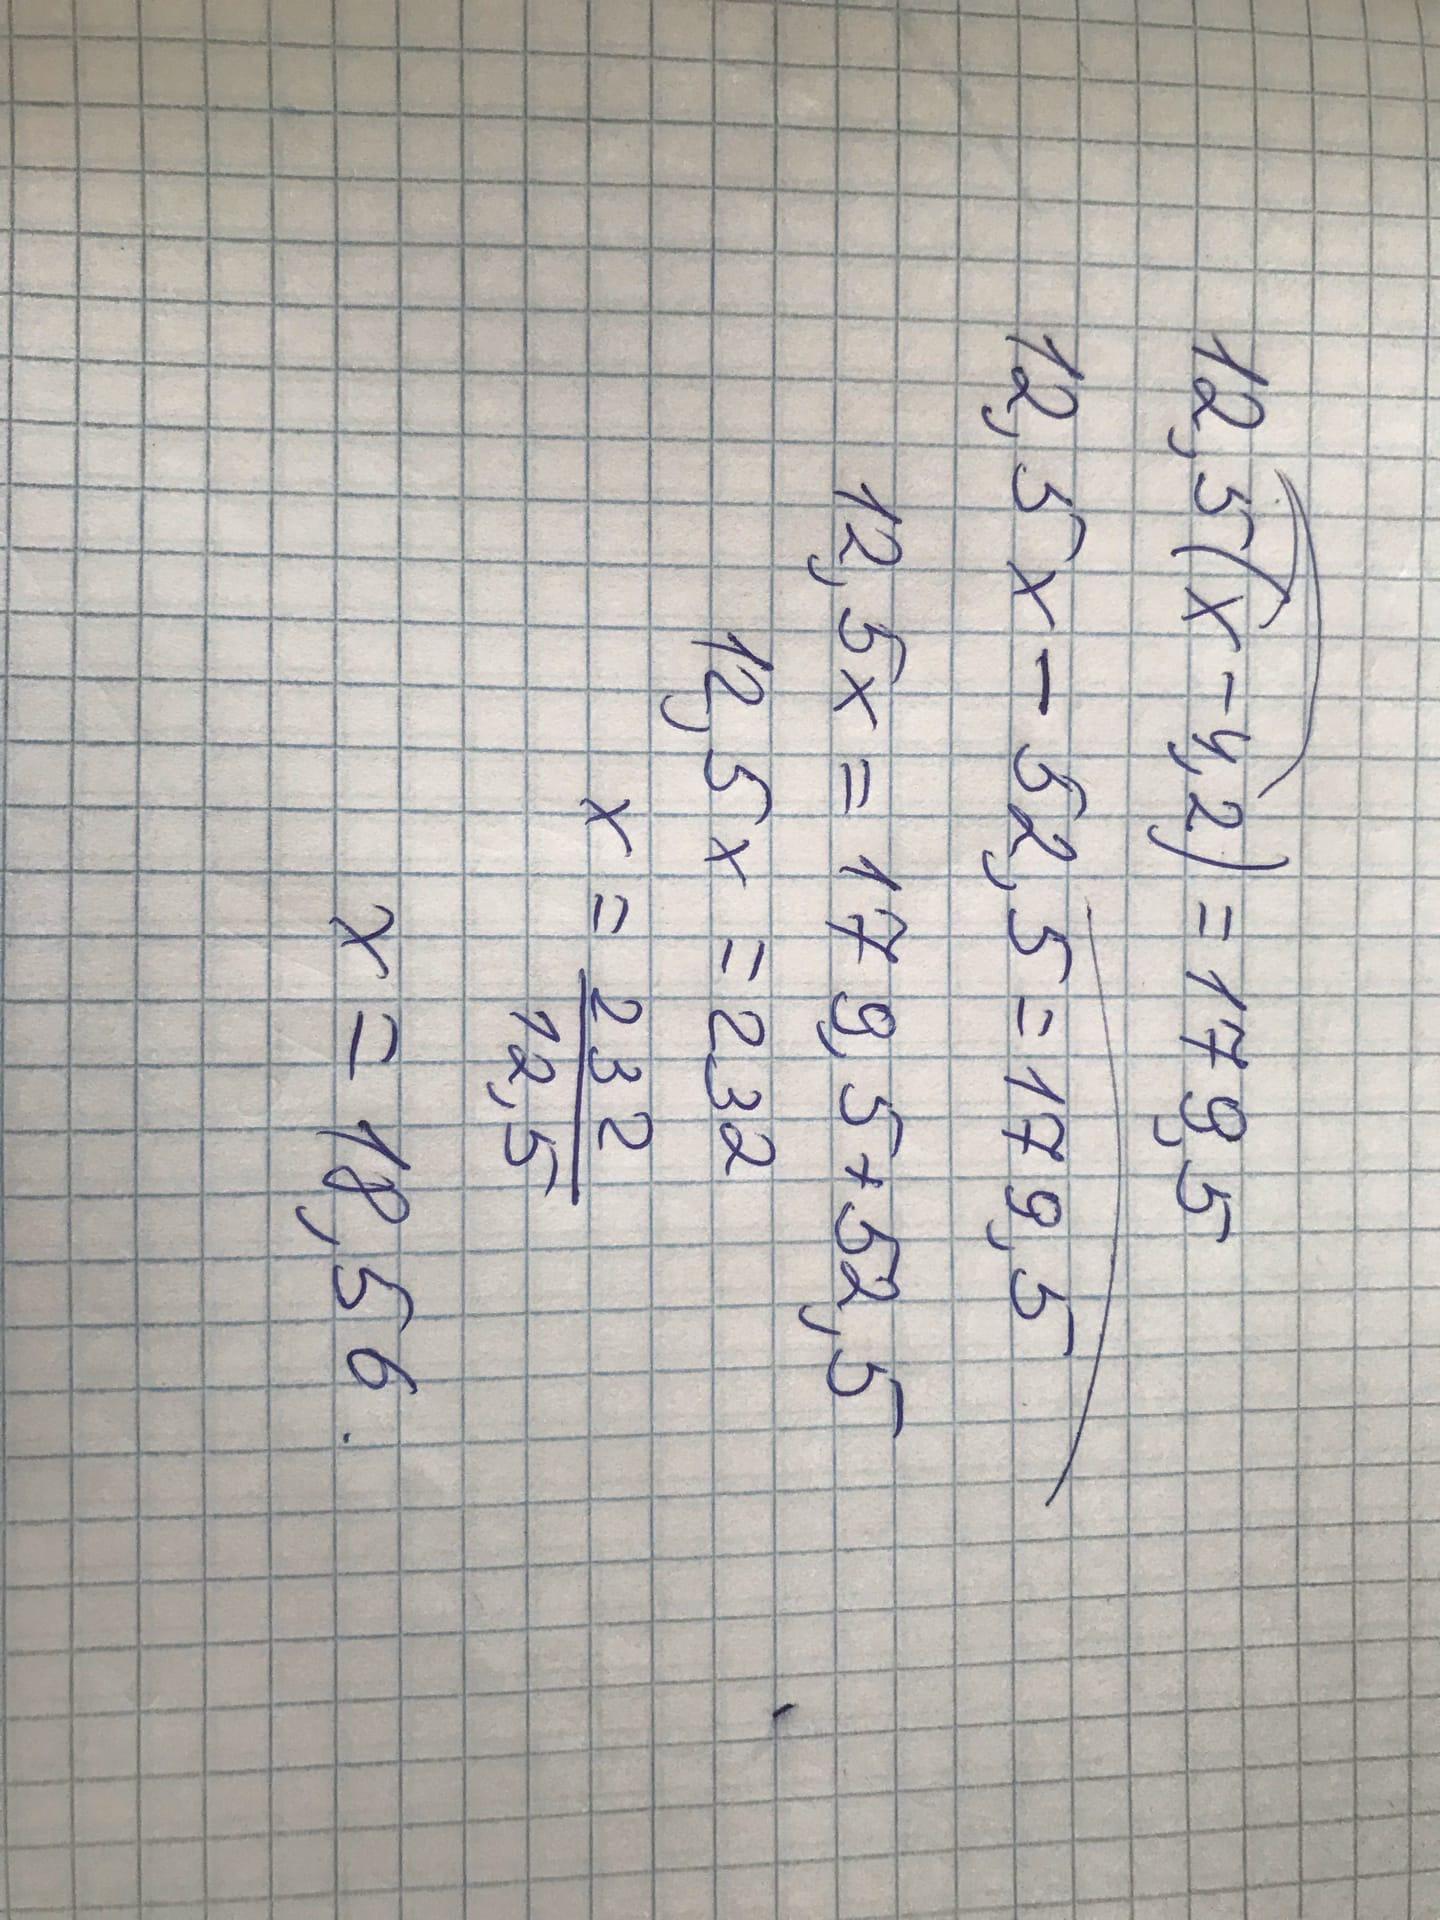 12,5(x-4,2)=179,5
12,5x-52,5=179,5
12,5x=179,5+52,5
12,5x=232
x=232/12,5
x=18,56.